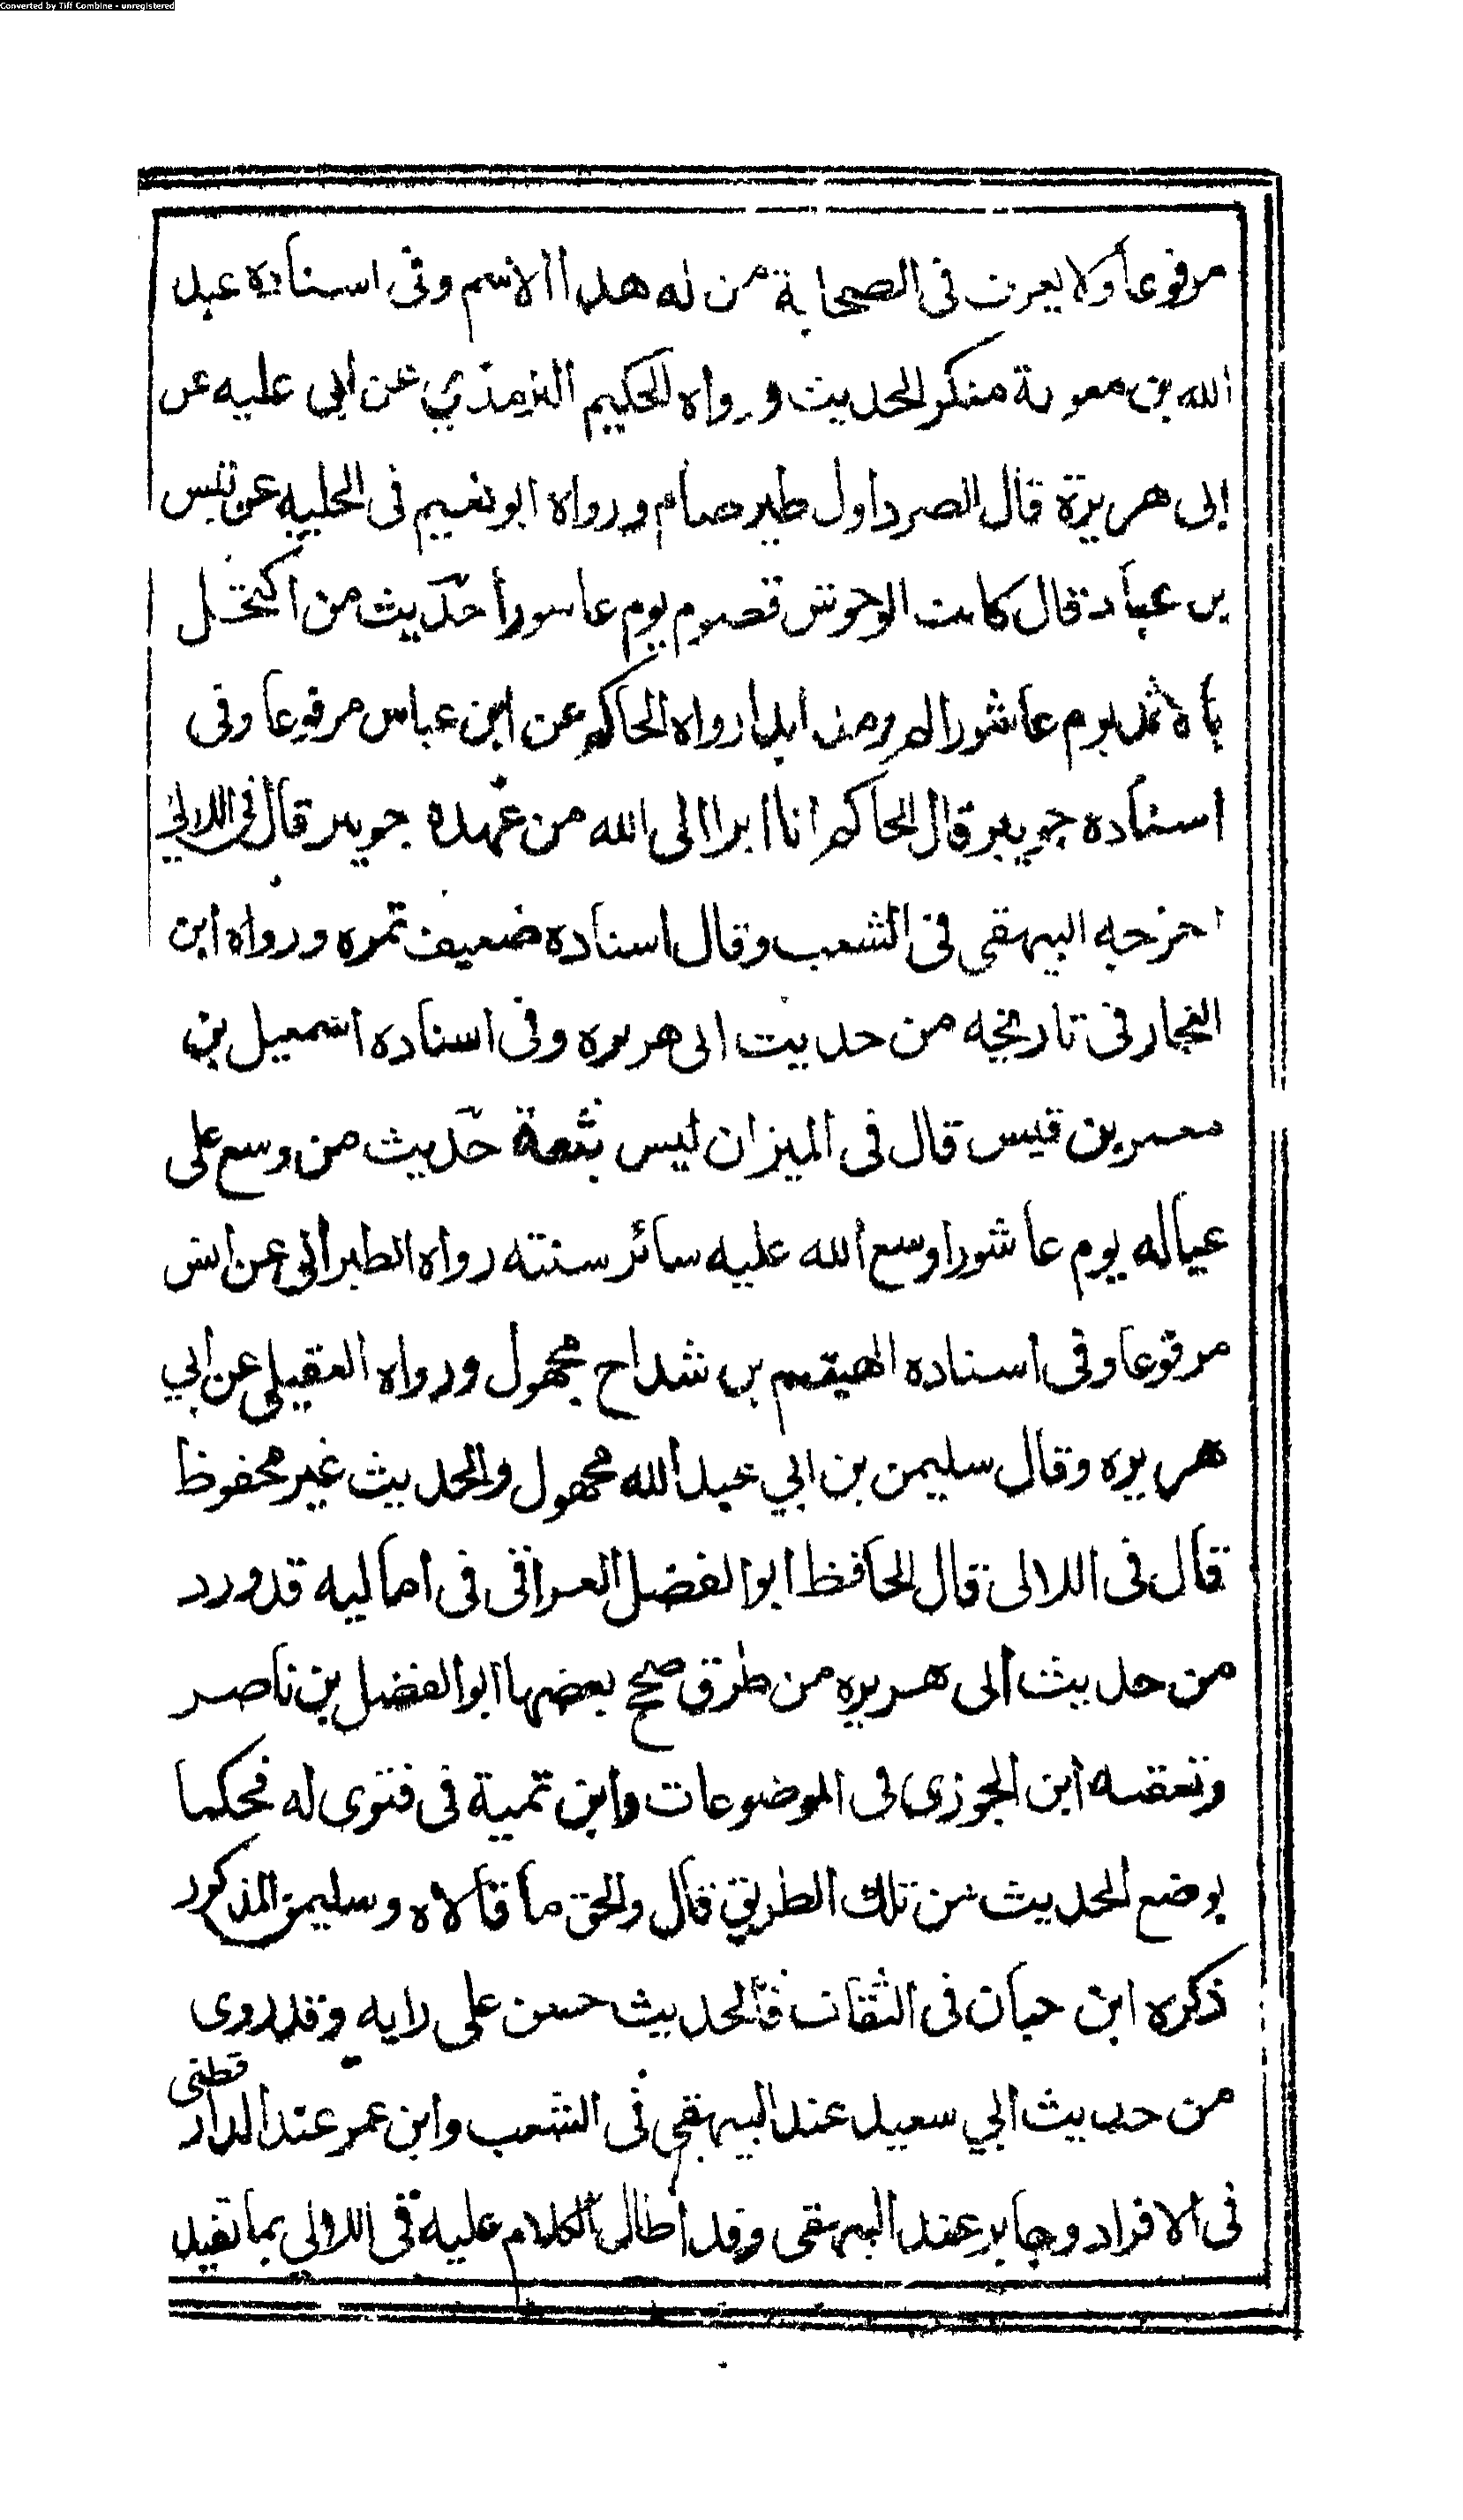 Converted by Tiff Combine - unregistered
مرفوعا ولا يعرف في الصحابة من له هدا الاسم وفى اسناده عبد
الله بن معوية منكر الحديث ورواه الحكيم الترمذي عن ابي عليه عن
ابى هريرة قال الصرد اول طير صام ورواه ابو نعيم فى الحليه عن قيس
بن عباد قال كانت الوحوش تصوم يوم عاسورا حديث من اكتحل
بالاثمد يوم عاشورا لم يرمد ابدا رواه الحاكم عن ابن عباس مرفوعا وفى
اسناده جويبر قال الحاكم انا ابرا الى الله من عهدة جويبر قال فى اللالي
اخرجه البيهقى فى الشعب وقال اسناده ضعيف بمره ورواه ابن
النجار فى تاريخه من حديث ابى هريره وفى اسناده اسمعيل بن
معمر بن قيس قال فى الميزان ليس بثقة حديث من وسع على
عياله يوم عاشورا وسع الله عليه سائر سنته رواه الطبرانى عن انس
مرفوعا وفى اسناده الهيقم بن شداح مجهول ورواه العقيلي عن ابي
هريره وقال سليمن بن ابي عبد الله مجهول والحديث غير محفوظ
قال فى اللالى قال الحافظ ابوالفضل العراقى فى اماليه قد ورد
من حديث ابى هريره من طرق صحح بعضها ابو الفضل بن ناصر
وتعقبه ابن الجوزى فى الموضوعات وابن تمية فى فتوى له فحكما
بوضع الحديث من تلك الطريق قال والحق ما قالاه وسليمن المذكور
ذكره ابن حبان فى الثقات فالحديث حسن على رايه وقد روى
من حديث ابي سعيد عند البيهقي فى الشعب وابن عمر عند الدار قطنى
فى الافراد وجابر عند البيهقى وقد اطال الكلام عليه فى اللالي بما تفيد